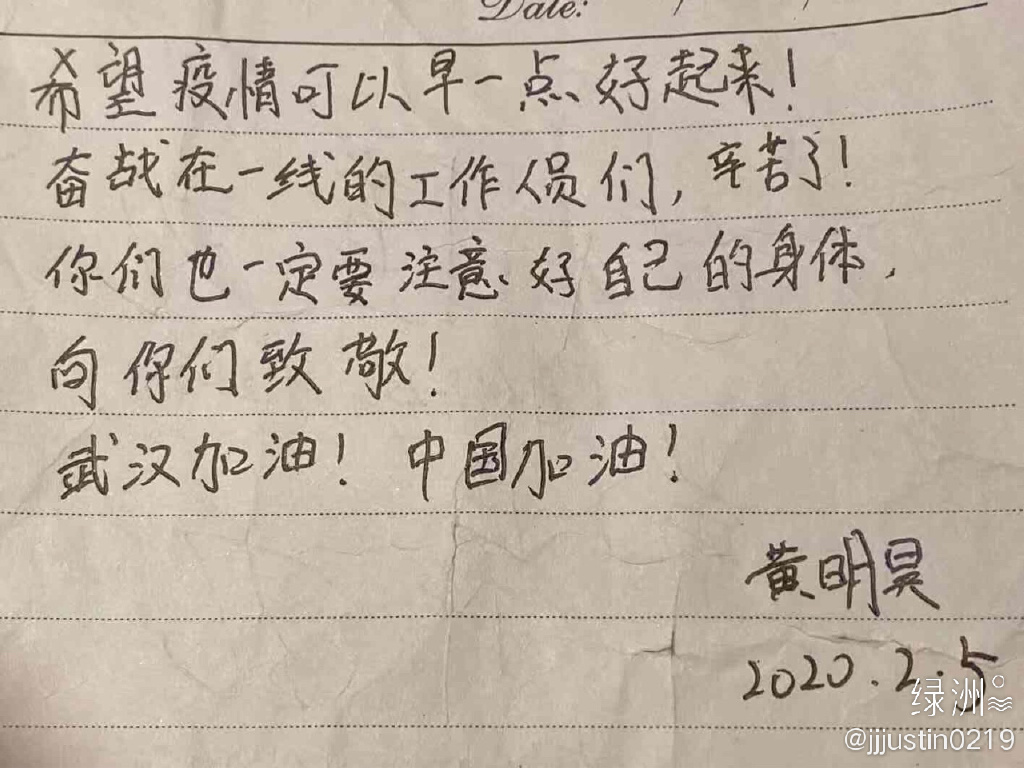 Date: / /
希望疫情可以早一点好起来！
奋战在一线的工作人员们，辛苦了！
你们也一定要注意好自己的身体，
向你们致敬！
武汉加油！中国加油！
黄明昊
2020.2.5
绿洲
@jjjustin0219